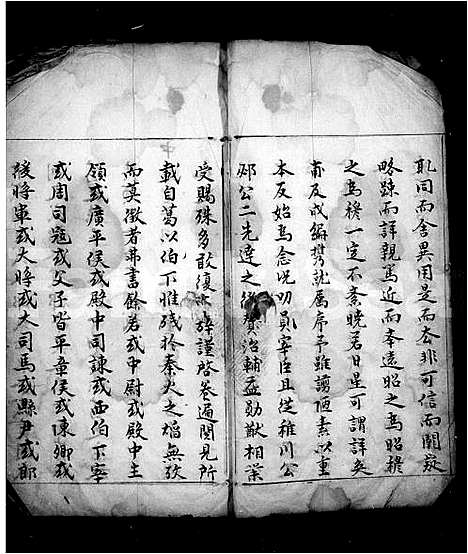 取同而舍異用是而去非可信而闕疑
略踈而詳親寫近而奉遠昭之為昭穆
之為穆一定不紊曉若日星可謂詳矣
甫及成編携就属序予雖謭陋素以重
本反始為念况叨員宰臣且從稚川公
邲公二先達之後賛治輔益勋猷相業
受賜殊多敢復以辞謹啓卷遍閱見所
載自葛以伯下惟殘於秦火之熖無攷
而莫徵者弗書餘若或中尉或殿中主
領或廣平侯或殿中司諫或西伯下宰
或周司寇或父子皆平章侯或陳卿或
綾將軍或大將或大司馬或縣尹或郎